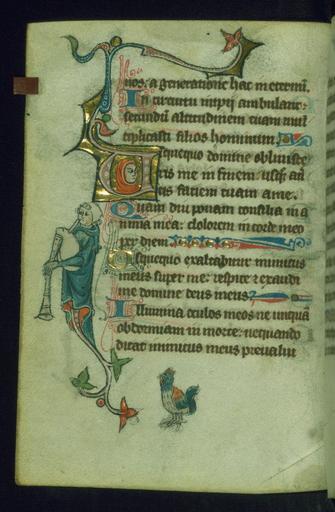 nos: a generatione hac in eternū.
In circuitu impij ambulant:
secundū altitudinem tuam mul
tiplicasti filios hominum.
Usquequo domine obliuisce
ris me in finem: usq; 
tis faciem tuam a me.
Quam diu ponam consilia in a
nima mea: dolorem in corde meo
per diem.
Usquequo exaltabitur inimicus
meus super me: respice & exaudi
me domine deus meus.
Illumina oculos meos ne unquā
obdormiam in morte: nequando
dicat inimicus meus preualui